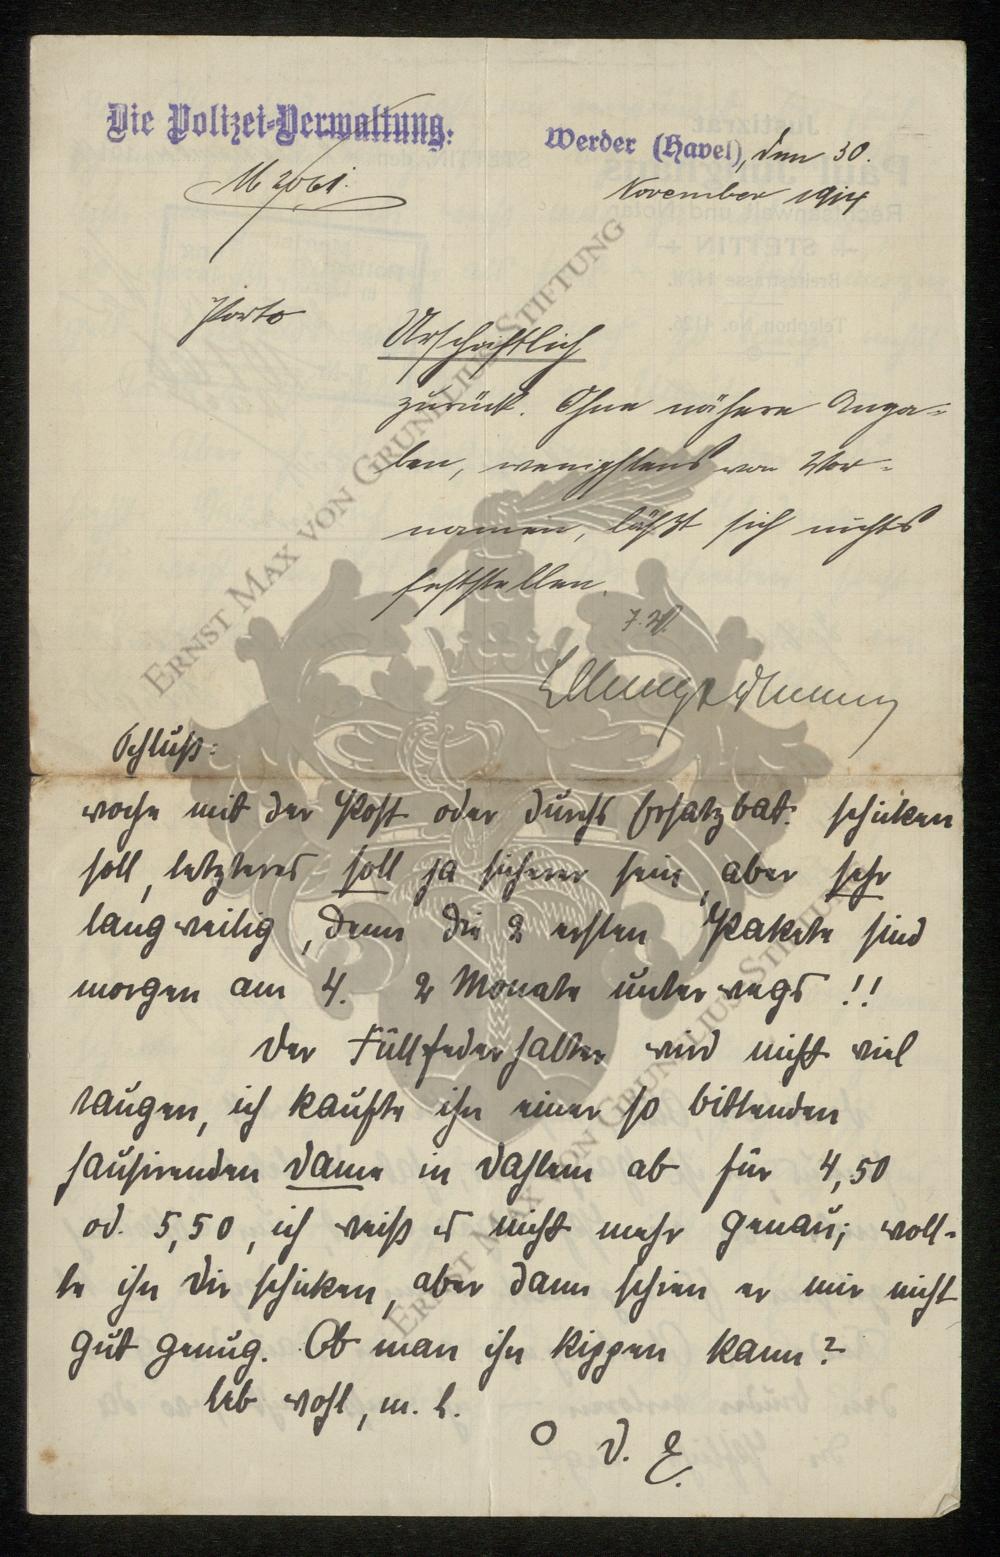 Die Polizei-Verwaltung.
Werder (Havel), den 30.
November 1914
Porto
Urschriftlich
zurück. Ohne nähere Anga-
ben, wenigstens von Vor-
namen, läßt sich nichts
feststellen.
J. V.
Schluß:
woche mit der Post oder durchs Ersatzbat: schicken
soll, letzteres soll ja sicherer sein, aber sehr
langweilig, denn die 2 ersten Pakete sind
morgen am 4. 2 Monate unterwegs !!
Der Füllfederhalter wird nicht viel
taugen, ich kaufte ihn einer so bittenden
hausirenden Dame in Dahlem ab für 4,50
od. 5,50, ich weiß es nicht mehr genau; woll-
te ihn dir schicken, aber dann schien er mir nicht
gut genug. Ob man ihn kippen kann?
leb wohl, m. l.
O D. E.
ERNST MAX VON GRUNELIUS STIFTUNG
ERNST MAX VON GRUNELIUS STIFTUNG